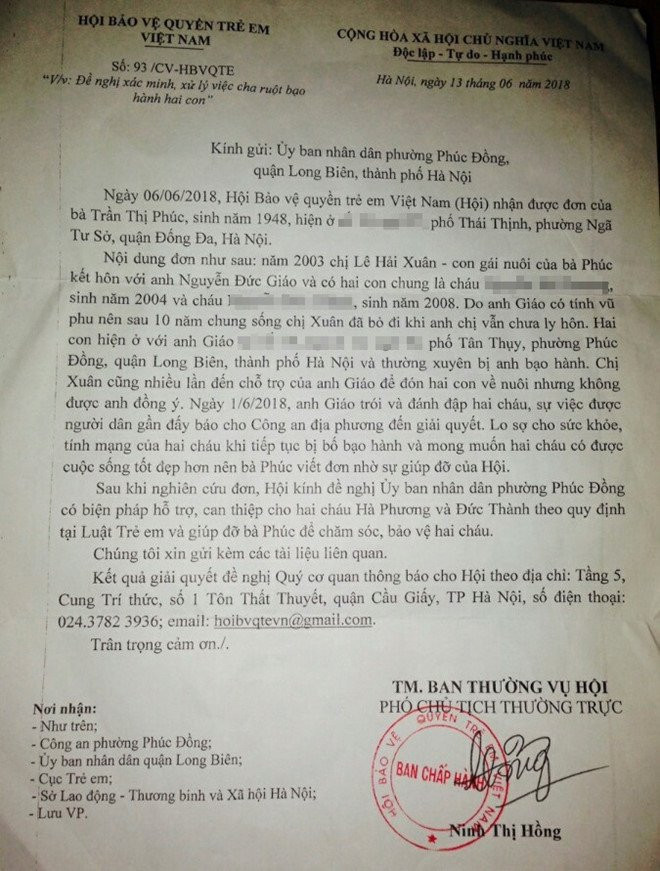 HỘI BẢO VỆ QUYỀN TRẺ EM
VIỆT NAM
CỘNG HÒA XÃ HỘI CHỦ NGHĨA VIỆT NAM
Độc lập - Tự do - Hạnh phúc
Số: 93 /CV-HBVQTE
"V/v: Đề nghị xác minh, xử lý việc cha ruột bạo
hành hai con"
Hà Nội, ngày 13 tháng 06 năm 2018
Kính gửi: Ủy ban nhân dân phường Phúc Đồng,
quận Long Biên, thành phố Hà Nội
Ngày 06/06/2018, Hội Bảo vệ quyền trẻ em Việt Nam (Hội) nhận được đơn của
bà Trần Thị Phúc, sinh năm 1948, hiện ở phố Thái Thịnh, phường Ngã
Tư Sở, quận Đống Đa, Hà Nội.
Nội dung đơn như sau: năm 2003 chị Lê Hải Xuân - con gái nuôi của bà Phúc
kết hôn với anh Nguyễn Đức Giáo và có hai con chung là cháu
sinh năm 2004 và cháu , sinh năm 2008. Do anh Giáo có tính vũ
phu nên sau 10 năm chung sống chị Xuân đã bỏ đi khi anh chị vẫn chưa ly hôn. Hai
con hiện ở với anh Giáo phố Tân Thụy, phường Phúc
Đồng, quận Long Biên, thành phố Hà Nội và thường xuyên bị anh bạo hành. Chị
Xuân cũng nhiều lần đến chỗ trọ của anh Giáo để đón hai con về nuôi nhưng không
được anh đồng ý. Ngày 1/6/2018, anh Giáo trói và đánh đập hai cháu, sự việc được
người dân gần đấy báo cho Công an địa phương đến giải quyết. Lo sợ cho sức khỏe,
tính mạng của hai cháu khi tiếp tục bị bố bạo hành và mong muốn hai cháu có được
cuộc sống tốt đẹp hơn nên bà Phúc viết đơn nhờ sự giúp đỡ của Hội.
Sau khi nghiên cứu đơn, Hội kính đề nghị Ủy ban nhân dân phường Phúc Đồng
có biện pháp hỗ trợ, can thiệp cho hai cháu Hà Phương và Đức Thành theo quy định
tại Luật Trẻ em và giúp đỡ bà Phúc để chăm sóc, bảo vệ hai cháu.
Chúng tôi xin gửi kèm các tài liệu liên quan.
Kết quả giải quyết đề nghị Quý cơ quan thông báo cho Hội theo địa chỉ: Tầng 5,
Cung Trí thức, số 1 Tôn Thất Thuyết, quận Cầu Giấy, TP Hà Nội, số điện thoại:
024.3782 3936; email: hoibvqtevn@gmail.com.
Trân trọng cảm ơn./.
TM. BAN THƯỜNG VỤ HỘI
PHÓ CHỦ TỊCH THƯỜNG TRỰC
Nơi nhận:
- Như trên;
- Công an phường Phúc Đồng;
- Ủy ban nhân dân quận Long Biên;
- Cục Trẻ em;
- Sở Lao động - Thương binh và Xã hội Hà Nội;
- Lưu VP.
HỘI BẢO VỆ QUYỀN TRẺ EM VIỆT NAM
BAN CHẤP HÀNH
Hồng
Ninh Thị Hồng